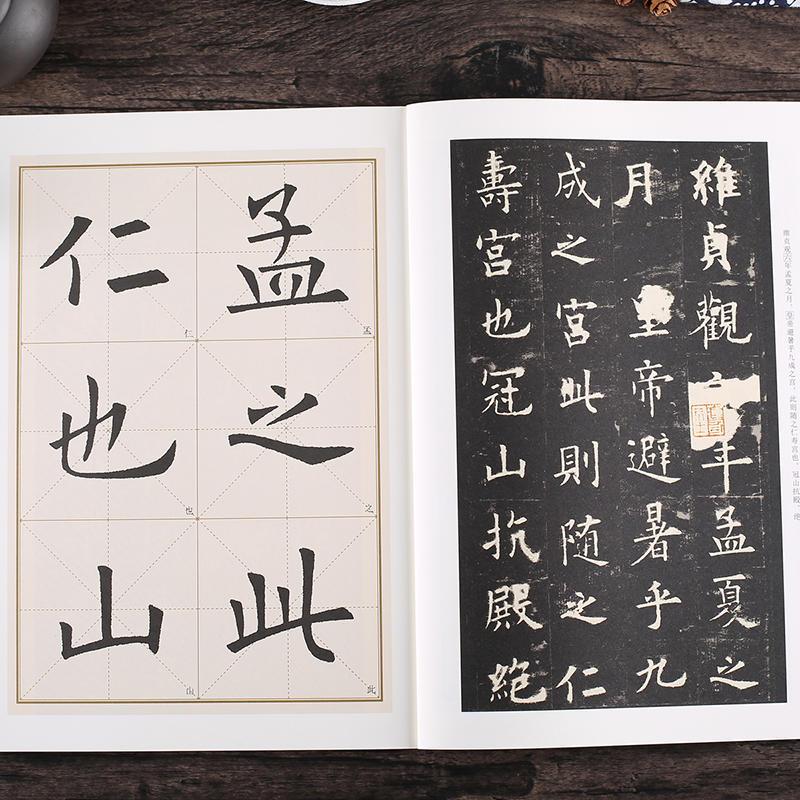 孟之此
仁也山
孟
之
此
仁
也
山
維貞觀六年孟夏之
月皇帝避暑乎九
成之宮此則随之仁
壽宮也冠山抗殿絕
维贞观六年孟夏之月，皇帝避暑乎九成之宫，此则随之仁寿宫也。冠山抗殿，绝